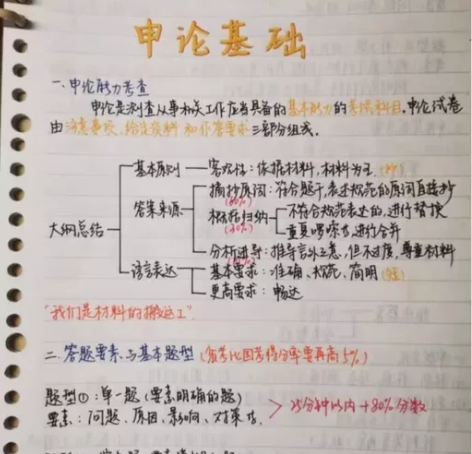 申论基础
一.申论能力考查
申论是测查从事机关工作应当具备的基本能力的考试科目.申论试卷
由注意事项、给定资料和作答要求三部分组成.
大纲总结
基本原则 客观性:依据材料,材料为王.
答案来源 摘抄原词:符合题干,表述规范的原词直接抄
概括归纳 不符合规范表述的,进行替换
重复啰嗦的,进行合并
分析进导:推导言外之意,但不过度,尊重材料
语言表达 基本要求:准确、规范、简明
更高要求:畅达
"我们是材料的搬运工"
二.答题要素与基本题型(省考比国考得分率要再高5%)
题型①:单一题(要素明确的题)
要素:问题、原因、影响、对策等.
> 25分钟以内→80%分数